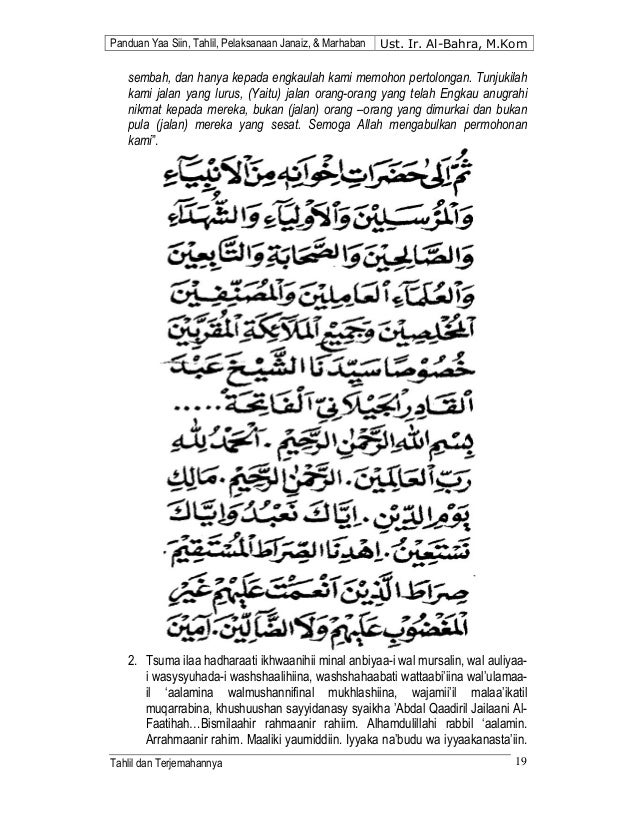 Panduan Yaa Siin, Tahlil, Pelaksanaan Janaiz, & Marhaban Ust. Ir. Al-Bahra, M.Kom
sembah, dan hanya kepada engkaulah kami memohon pertolongan. Tunjukilah
kami jalan yang lurus, (Yaitu) jalan orang-orang yang telah Engkau anugrahi
nikmat kepada mereka, bukan (jalan) orang –orang yang dimurkai dan bukan
pula (jalan) mereka yang sesat. Semoga Allah mengabulkan permohonan
kami”.
ثُمَّ اِلَى حَضَرَاتِ اِخْوَانِهِ مِنَ الْاَنْبِيَآءِ
وَالْمُرْسَلِيْنَ وَالْاَوْلِيَآءِ وَالشُّهَدَآءِ
وَالصَّالِحِيْنَ وَالصَّحَابَةِ وَالتَّابِعِيْنَ
وَالْعُلَمَآءِ الْعَامِلِيْنَ وَالْمُصَنِّفِيْنَ
الْمُخْلِصِيْنَ وَجَمِيْعِ الْمَلَآئِكَةِ الْمُقَرَّبِيْنَ
خُصُوْصًا سَيِّدَنَا الشَّيْخَ عَبْدَ
الْقَادِرِ الْجَيْلَانِيِّ اَلْفَاتِحَةُ.....
بِسْمِ اللهِ الرَّحْمٰنِ الرَّحِيْمِ. اَلْحَمْدُ لِلّٰهِ
رَبِّ الْعَالَمِيْنَ. الرَّحْمٰنِ الرَّحِيْمِ. مَالِكِ
يَوْمِ الدِّيْنِ. اِيَّاكَ نَعْبُدُ وَاِيَّاكَ
نَسْتَعِيْنُ. اِهْدِنَا الصِّرَاطَ الْمُسْتَقِيْمَ.
صِرَاطَ الَّذِيْنَ اَنْعَمْتَ عَلَيْهِمْ غَيْرِ
الْمَغْضُوْبِ عَلَيْهِمْ وَلَا الضَّآلِّيْنَ. اٰمِيْنَ
2. Tsuma ilaa hadharaati ikhwaanihii minal anbiyaa-i wal mursalin, wal auliyaa-
i wasysyuhada-i washshaalihiina, washshahaabati wattaabi’iina wal’ulamaa-
il ‘aalamina walmushannifinal mukhlashiina, wajamii’il malaa’ikatil
muqarrabina, khushuushan sayyidanasy syaikha ’Abdal Qaadiril Jailaani Al-
Faatihah…Bismilaahir rahmaanir rahiim. Alhamdulillahi rabbil ‘aalamin.
Arrahmaanir rahim. Maaliki yaumiddiin. Iyyaka na’budu wa iyyaakanasta’iin.
Tahlil dan Terjemahannya 19